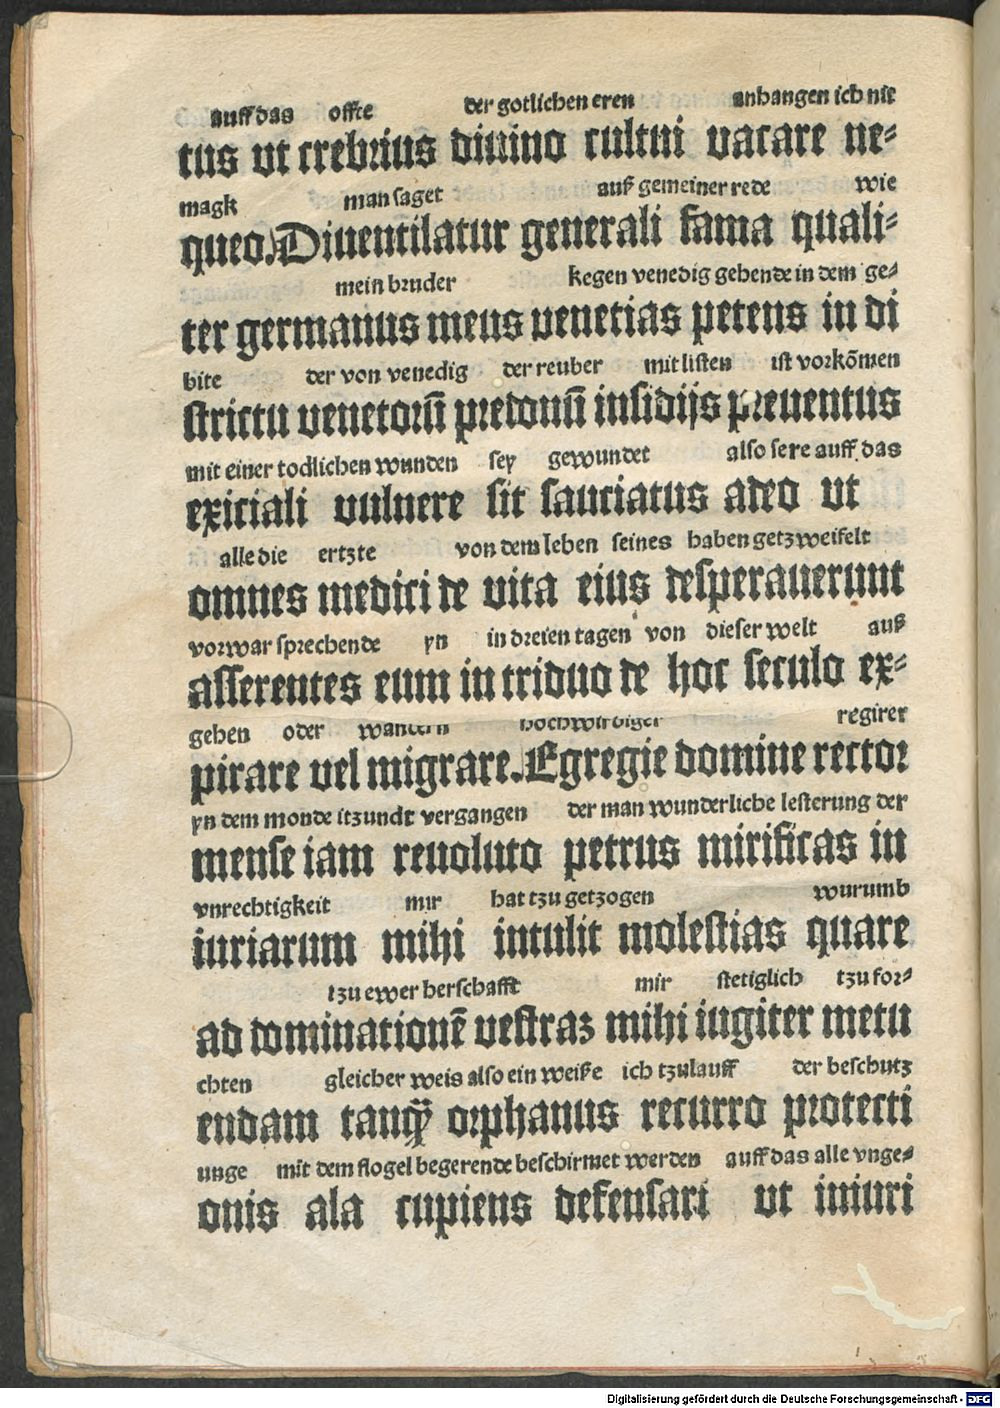 auff das offte der gotlichen eren anhangen ich nit
tus ut crebrius diuino cultui uacare ne⸗
magk man saget auß gemeiner rede wie
queo. Diuentilatur generali fama quali⸗
mein bruder kegen venedig gehende in dem ge⸗
ter germanus meus uenetias petens in di
bite der von venedig der reuber mit listen ist vorkōmen
strictu uenetorū predonū insidijs preuentus
mit einer todlichen wunden sey gewundet also sere auff das
exiciali uulnere sit sauciatus adeo ut
alle die ertzte von dem leben seines haben getzweifelt
omnes medici de uita eius desperauerunt
vorwar sprechende yn in dreien tagen von dieser welt auß
asserentes eum in triduo de hoc seculo ex⸗
gehen oder wandern hochwirdiger regirer
pirare uel migrare. Egregie domine rector
yn dem monde itzundt vergangen der man wunderliche lesterung der
mense iam reuoluto petrus mirificas in
vnrechtigkeit mir hat tzu getzogen wurumb
iuriarum mihi intulit molestias quare
tzu ewer herschafft mir stetiglich tzu for⸗
ad dominationē uestraz mihi iugiter metu
chten gleicher weis also ein weiße ich tzulauff der beschutz
endam tanq̄ orphanus recurro protecti
unge mit dem flogel begerende beschirmet werden auff das alle vnge⸗
onis ala cupiens defensari ut iniuri
Digitalisierung gefördert durch die Deutsche Forschungsgemeinschaft - DFG